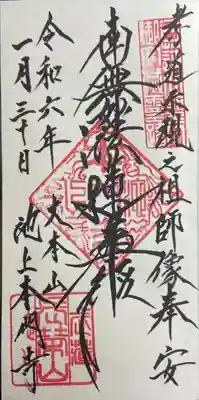 孝道示現之祖師像奉安
南無妙法蓮華経
大本山
池上本門寺
令和六年
一月三十日